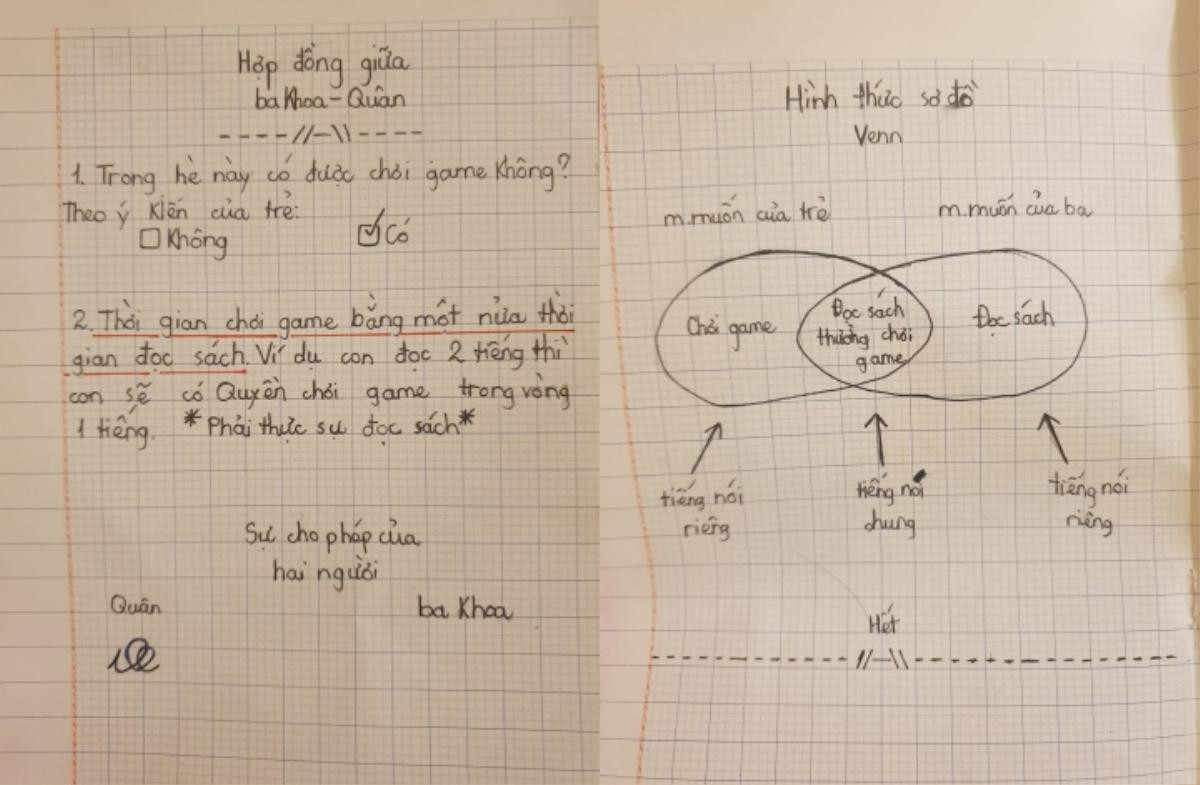 Hợp đồng giữa
ba Khoa - Quân
----//-\\----
1. Trong hè này có được chơi game không?
Theo ý kiến của trẻ:
☐ Không ☑ Có
2. Thời gian chơi game bằng một nửa thời
gian đọc sách. Ví dụ con đọc 2 tiếng thì
con sẽ có Quyền chơi game trong vòng
1 tiếng. *Phải thực sự đọc sách*
Sự cho phép của
hai người
Quân ba Khoa
Hình thức sơ đồ
Venn
m.muốn của trẻ m.muốn của ba
Chơi game
Đọc sách
thưởng chơi
game
Đọc sách
tiếng nói
riêng
tiếng nói
chung
tiếng nói
riêng
Hết
--------------//-\\------------------